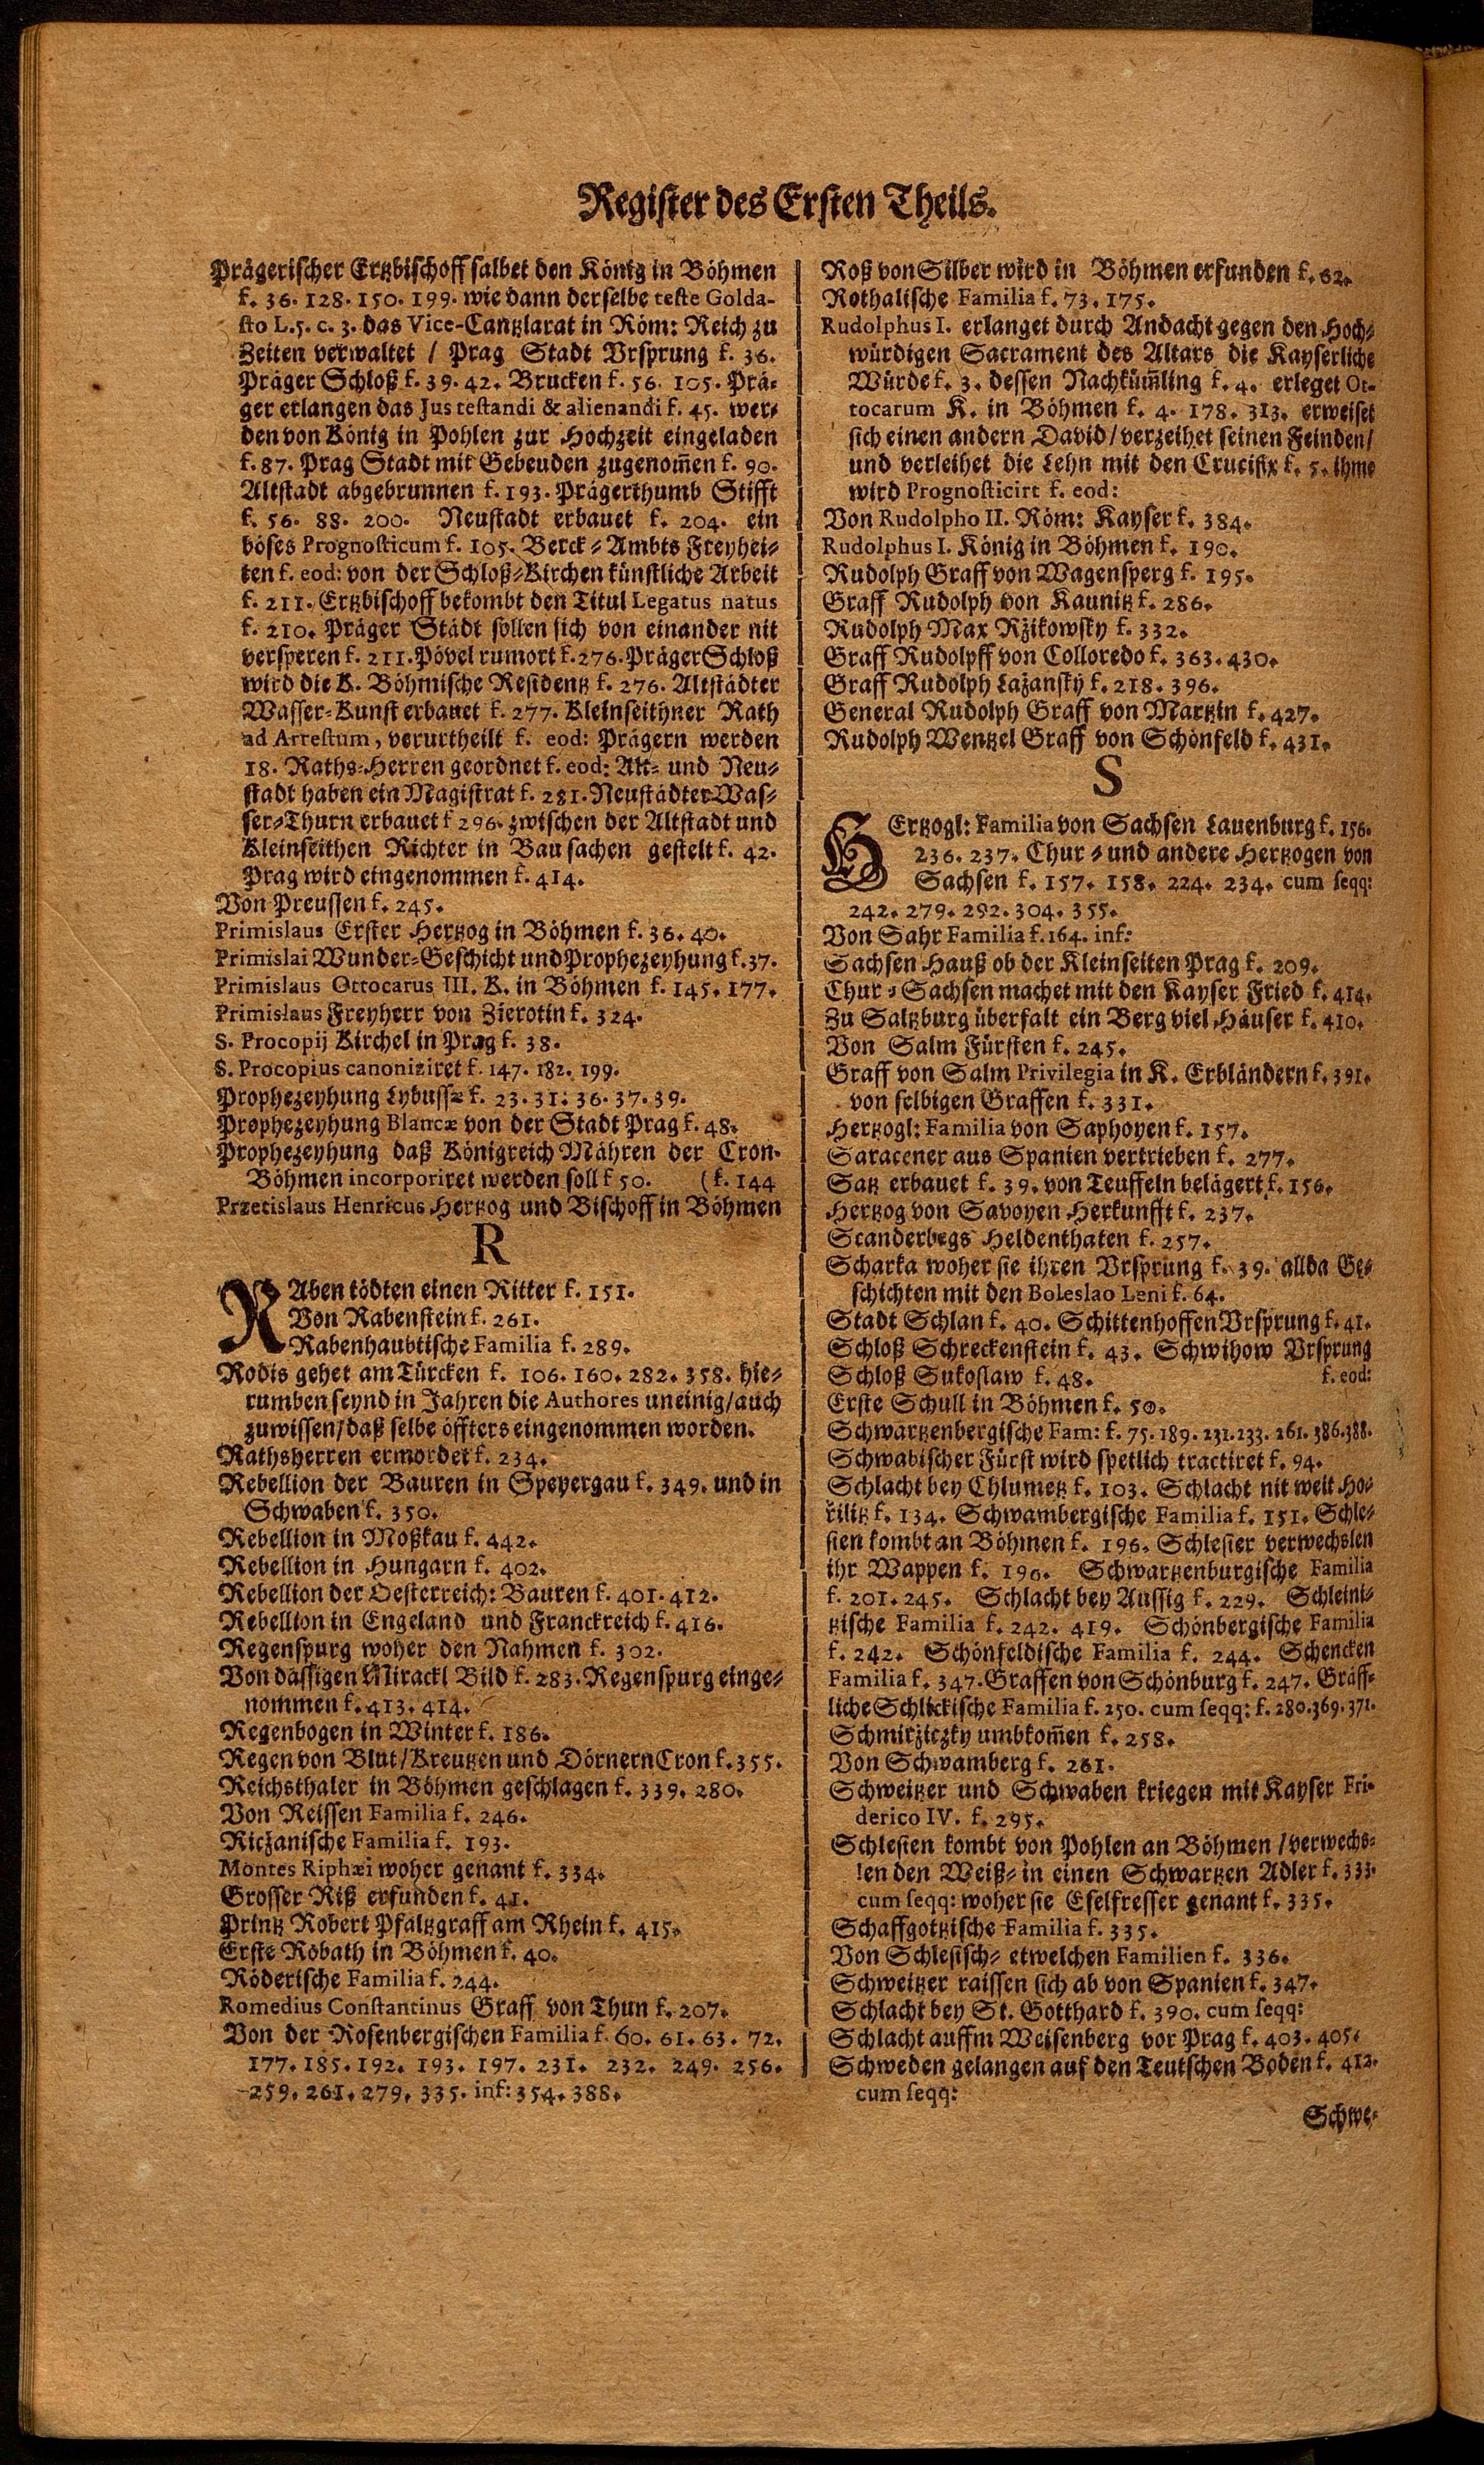 Register des Ersten Theils.
Prägerischer Ertzbischoff salbet den König in Böhmen
f. 36. 128. 150. 199. wie dann derselbe teste Golda-
sto L. 5. c. 3. das Vice-Cantzlarat in Röm: Reich zu
Zeiten verwaltet / Prag Stadt Vrsprung f. 36.
Präger Schloß f. 39. 42. Brucken f. 56. 105. Prä-
ger erlangen das Jus testandi & alienandi f. 45. wer-
den von König in Pohlen zur Hochzeit eingeladen
f. 87. Prag Stadt mit Gebeuden zugenom̄en f. 90.
Altstadt abgebrunnen f. 193. Prägerthumb Stifft
f. 56. 88. 200. Neustadt erbauet f. 204. ein
böses Prognosticum f. 105. Berck-Ambts Freyhei-
ten f. eod: von der Schloß-Kirchen künstliche Arbeit
f. 211. Ertzbischoff bekombt den Titul Legatus natus
f. 210. Präger Städt sollen sich von einander nit
versperen f. 211. Pövel rumort f. 276. Präger Schloß
wird die K. Böhmische Residentz f. 276. Altstädter
Wasser-Kunst erbauet f. 277. Kleinseithner Rath
ad Arrestum, verurtheilt f. eod: Prägern werden
18. Raths-Herren geordnet f. eod: Alt- und Neu-
stadt haben ein Magistrat f. 281. Neustädter Was-
ser-Thurn erbauet f 296. zwischen der Altstadt und
Kleinseithen Richter in Bau sachen gestelt f. 42.
Prag wird eingenommen f. 414.
Von Preussen f. 245.
Primislaus Erster Hertzog in Böhmen f. 36. 40.
Primislai Wunder-Geschicht und Prophezeyhung f. 37.
Primislaus Ottocarus III. K. in Böhmen f. 145. 177.
Primislaus Freyherr von Zierotin f. 324.
S. Procopij Kirchel in Prag f. 38.
S. Procopius canoniziret f. 147. 182. 199.
Prophezeyhung Lybussæ f. 23. 31: 36. 37. 39.
Prophezeyhung Blancæ von der Stadt Prag f. 48.
Prophezeyhung daß Königreich Mähren der Cron-
Böhmen incorporiret werden soll f 50. (f. 144
Przetislaus Henricus Hertzog und Bischoff in Böhmen
R
RAben tödten einen Ritter f. 151.
Von Rabenstein f. 261.
Rabenhaubtische Familia f. 289.
Rodis gehet am Türcken f. 106. 160. 282. 358. hie-
rumben seynd in Jahren die Authores uneinig/auch
zuwissen/daß selbe öffters eingenommen worden.
Rathsherren ermordet f. 234.
Rebellion der Bauren in Speyergau f. 349. und in
Schwaben f. 350.
Rebellion in Moßkau f. 442.
Rebellion in Hungarn f. 402.
Rebellion der Oesterreich: Bauren f. 401. 412.
Rebellion in Engeland und Franckreich f. 416.
Regenspurg woher den Nahmen f. 302.
Von dässigen Mirackl Bild f. 283. Regenspurg einge-
nommen f. 413. 414.
Regenbogen in Winter f. 186.
Regen von Blut/Kreutzen und Dörnern Cron f. 355.
Reichsthaler in Böhmen geschlagen f. 339. 280.
Von Reissen Familia f. 246.
Riczanische Familia f. 193.
Montes Riphæi woher genant f. 334.
Grosser Riß erfunden f. 41.
Printz Robert Pfaltzgraff am Rhein f. 415.
Erste Robath in Böhmen f. 40.
Röderische Familia f. 244.
Romedius Constantinus Graff von Thun f. 207.
Von der Rosenbergischen Familia f. 60. 61. 63. 72.
177. 185. 192. 193. 197. 231. 232. 249. 256.
259. 261. 279. 335. inf: 354. 388.
Roß von Silber wird in Böhmen erfunden f. 62.
Rothalische Familia f. 73. 175.
Rudolphus I. erlanget durch Andacht gegen den Hoch-
würdigen Sacrament des Altars die Kayserliche
Würde f. 3. dessen Nachküm̄ling f. 4. erleget Ot-
tocarum K. in Böhmen f. 4. 178. 313. erweiset
sich einen andern David/verzeihet seinen Feinden/
und verleihet die Lehn mit den Crucifix f. 5. ihme
wird Prognosticirt f. eod:
Von Rudolpho II. Röm: Kayser f. 384.
Rudolphus I. König in Böhmen f. 190.
Rudolph Graff von Wagensperg f. 195.
Graff Rudolph von Kaunitz f. 286.
Rudolph Max Ržikowsky f. 332.
Graff Rudolpff von Colloredo f. 363. 430.
Graff Rudolph Lažansky f. 218. 396.
General Rudolph Graff von Martzin f. 427.
Rudolph Wentzel Graff von Schönfeld f. 431.
S
HErtzogl: Familia von Sachsen Lauenburg f. 156.
236. 237. Chur- und andere Hertzogen von
Sachsen f. 157. 158. 224. 234. cum seqq:
242. 279. 292. 304. 355.
Von Sahr Familia f. 164. inf:
Sachsen Hauß ob der Kleinseiten Prag f. 209.
Chur-Sachsen machet mit den Kayser Fried f. 414.
Zu Saltzburg überfalt ein Berg viel Häuser f. 410.
Von Salm Fürsten f. 245.
Graff von Salm Privilegia in K. Erbländern f. 391.
von selbigen Graffen f. 331.
Hertzogl: Familia von Saphoyen f. 157.
Saracener aus Spanien vertrieben f. 277.
Satz erbauet f. 39. von Teuffeln belägert f. 156.
Hertzog von Savoyen Herkunfft f. 237.
Scanderbegs Heldenthaten f. 257.
Scharka woher sie ihren Vrsprung f. 39. allda Ge-
schichten mit den Boleslao Leni f. 64.
Stadt Schlan f. 40. Schittenhoffen Vrsprung f. 41.
Schloß Schreckenstein f. 43. Schwihow Vrsprung
Schloß Sukoslaw f. 48. f. eod:
Erste Schull in Böhmen f. 50.
Schwartzenbergische Fam: f. 75. 189. 231. 233. 261. 386. 388.
Schwabischer Fürst wird spetlich tractiret f. 94.
Schlacht bey Chlumetz f. 103. Schlacht nit weit Ho-
řilitz f. 134. Schwambergische Familia f. 151. Schle-
sien kombt an Böhmen f. 196. Schlesier verwechslen
ihr Wappen f. 196. Schwartzenburgische Familia
f. 201. 245. Schlacht bey Aussig f. 229. Schleini-
tzische Familia f. 242. 419. Schönbergische Familia
f. 242. Schönfeldische Familia f. 244. Schencken
Familia f. 347. Graffen von Schönburg f. 247. Gräff-
liche Schlickische Familia f. 250. cum seqq: f. 280. 369. 371.
Schmirziczky umbkom̄en f. 258.
Von Schwamberg f. 261.
Schweitzer und Schwaben kriegen mit Kayser Fri-
derico IV. f. 295.
Schlesien kombt von Pohlen an Böhmen / verwechs-
len den Weiß- in einen Schwartzen Adler f. 333.
cum seqq: woher sie Eselfresser genant f. 335.
Schaffgottzische Familia f. 335.
Von Schlesisch- etwelchen Familien f. 336.
Schweitzer raissen sich ab von Spanien f. 347.
Schlacht bey St. Gotthard f. 390. cum seqq:
Schlacht auffm Weisenberg vor Prag f. 403. 405.
Schweden gelangen auf den Teutschen Boden f. 412.
cum seqq:
Schwe-